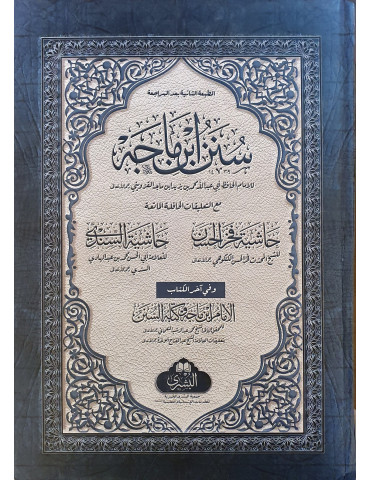 الطبعة الثانية بعد المراجعة
سنن ابن ماجه
للإمام الحافظ أبي عبد الله محمد بن يزيد ابن ماجه القزويني
مع التعليقات الحافلة الماتعة
حاشية فخر الحسن
حاشية السندي
للشيخ المحدث فخر الحسن الكنكوهي
للعلامة أبي الحسن محمد بن عبد الهادي
السندي
وفي آخر الكتاب
الإمام ابن ماجه وكتابه السنن
للمحقق محمد عبد الرشيد النعماني
البشرى